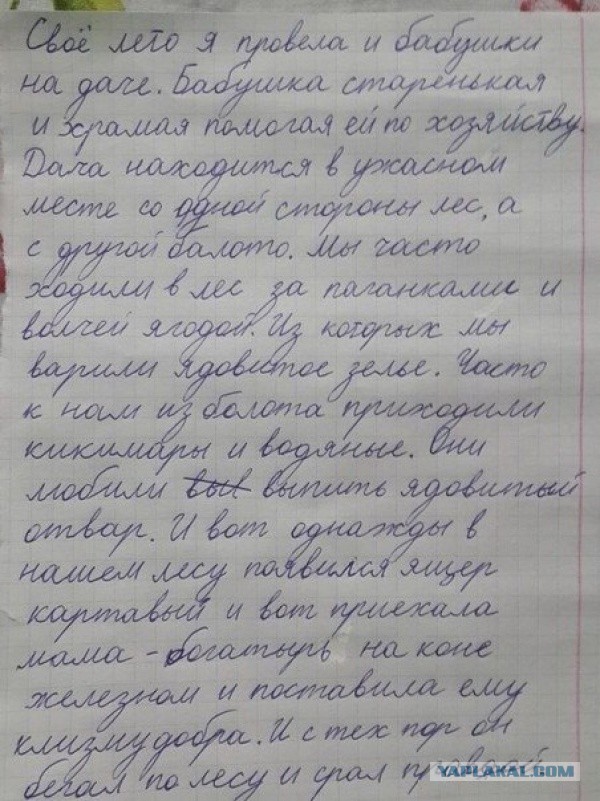 Своё лето я провела и бабушки
на даче. Бабушка старенькая
и храмая помогая ей по хозяйству.
Дача находится в ужасном
месте со одной стороны лес, а
с другой балото. Мы часто
ходили в лес за паганками и
волчей ягодой. Из которых мы
варили ядовитое зелье. Часто
к нам из болота приходили
кикимары и водяные. Они
любили выпить ядовитый
отвар. И вот однажды в
нашем лесу появился ящер
картавый и вот приехала
мама - богатырь на коне
железном и поставила ему
клизму добра. И с тех пор он
бегал по лесу и срал
YAPLAKAL.COM